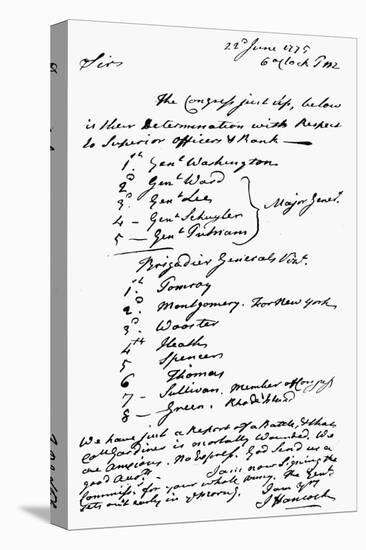 22d June 1775
Sirs 6 oClock P M
The Congress just up, below
is their Determination with Respect
to Superior Officers & Rank
1st Genl Washington
2d Genl Ward
3d Genl Lee
4 - Genl Schuyler
5 - Genl Putnam
Major Genls.
Brigadier Generals Vizt.
1st Pomroy
2d Montgomery. For New York
3d Wooster
4th Heath
5 Spencer
6 Thomas
7 - Sullivan. Member of Congress
8 - Green. Rhode Island
We have just a Report of a Battle, & that
Gardner is mortally Wounded. We
are Anxious. No Express. God Send us a
good Acct. I am now Signing the
Commiss. for your whole Army. The Genl
Sets out early in ye Morng. I am Yrs
J Hancock